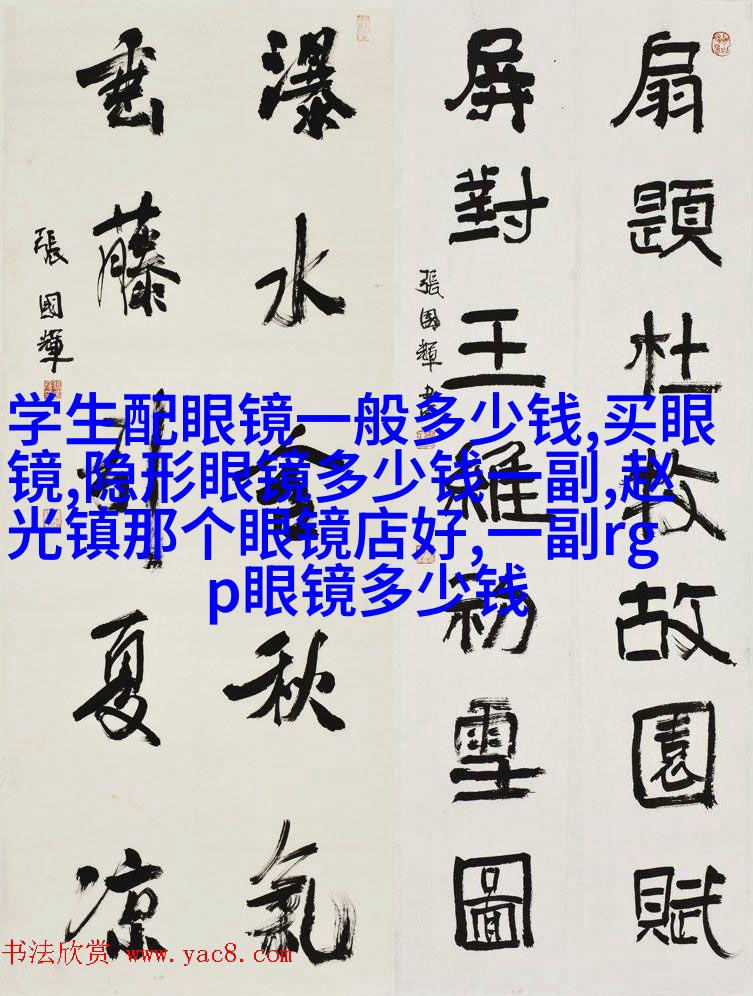 扇題杜牧故園賦
屏對王維初雪圖
張國輝書
瀑水含秋氣
垂藤引夏凉
張國輝
学生配眼镜一般多少钱,买眼
镜,隐形眼镜多少钱一副,赵
光镇那个眼镜店好,一副rg
p眼镜多少钱
书法欣赏 www.yac8.com